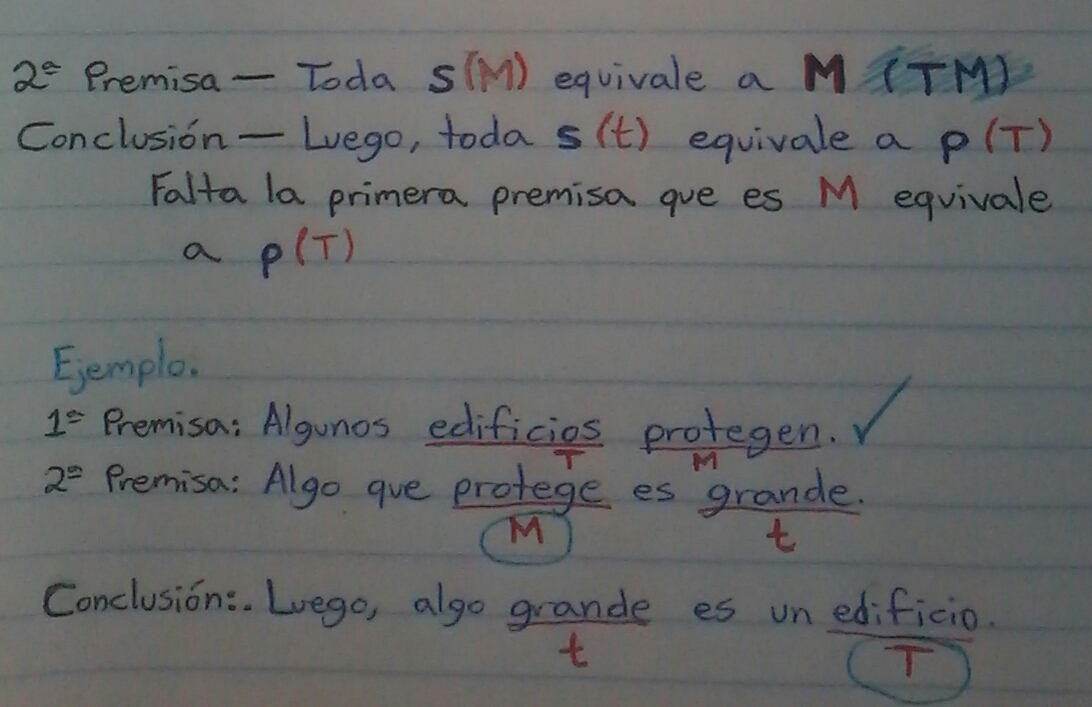 2ª Premisa — Toda s(M) equivale a M (TM)
Conclusión — Luego, toda s(t) equivale a p(T)
Falta la primera premisa que es M equivale
a p(T)
Ejemplo.
1ª Premisa: Algunos edificios protegen. ✓
T M
2ª Premisa: Algo que protege es grande.
M t
Conclusión:. Luego, algo grande es un edificio.
t T